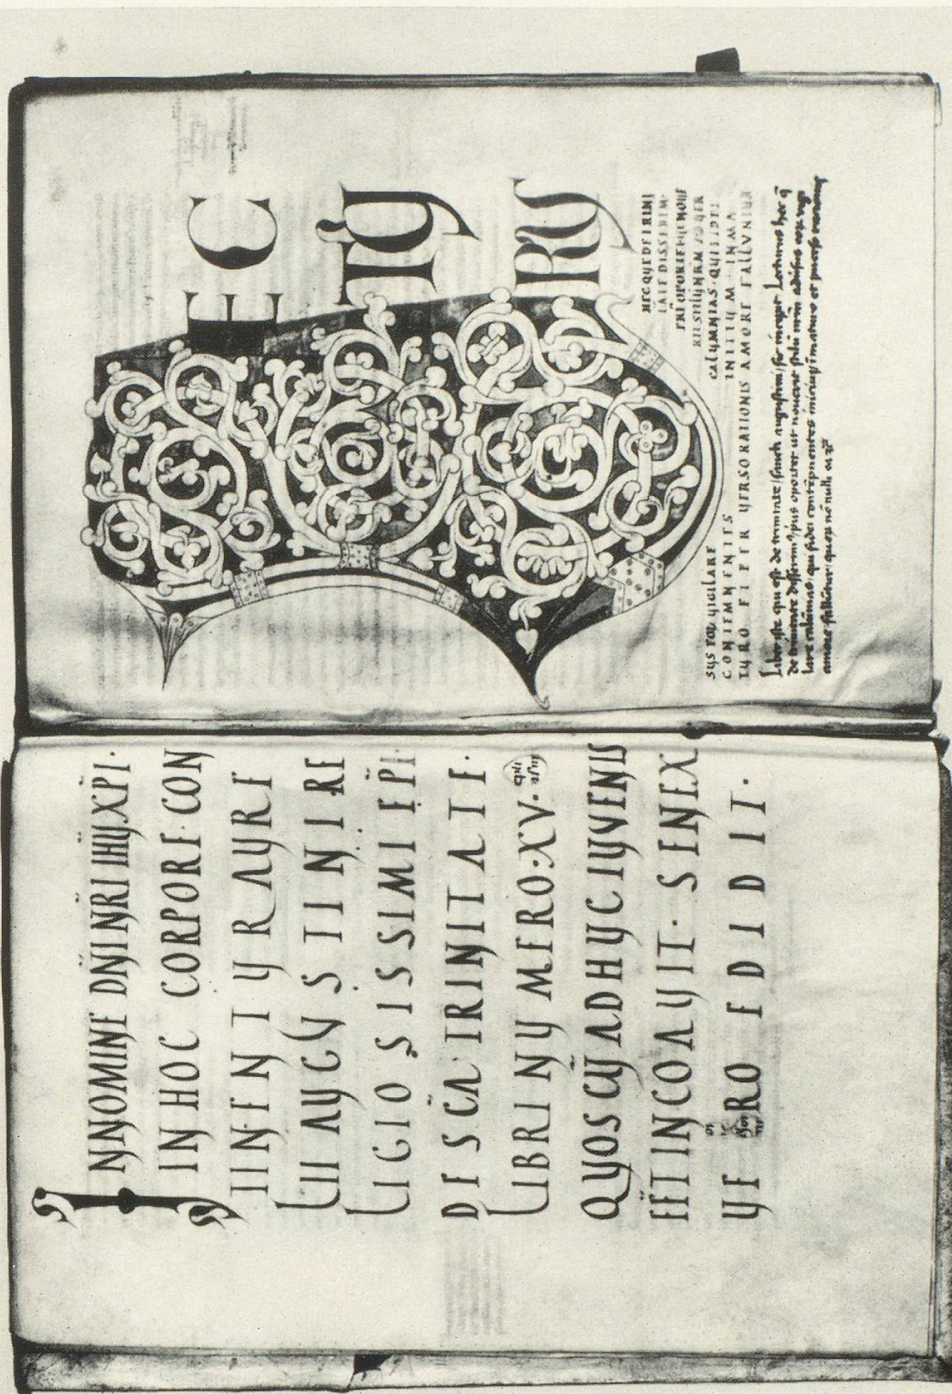 INNOMINE DN̄I NR̄I IHŪ XP̄I·
IN HOC CORPORE CON
TINENTUR AURE
LII AUGUSTINI RE
LIGIOSISSIMI EP̄I
DE SC̄A TRINITATE·
LIBRI NUMERO·XV·
QUOS CŪ ADHUC IUVENIS
EET INCOAVIT· SENEX
VERO EDIDIT·
EC
TU
RUS
HEC QUE DE TRINI
TATE DISSERIM·
OPORTET UT NOUE
RIT STILUM NRM
SUS VIGILARE CALUMNIAS·QUI FIDEI
CONTEMNENTES INITIUM· INMA
TURO ET PERVERSO RATIONIS AMORE FALLUNTUR
Liber iste qui est de trinitate sancti augustini sic incipit Lecturus hec q̄
de trinitate disserim⁹ oportet ut noverit stilū nrm adversus vigi
lare calumnias qui fidei contēpnentes initiū īmaturo et rationis
amore falluntur